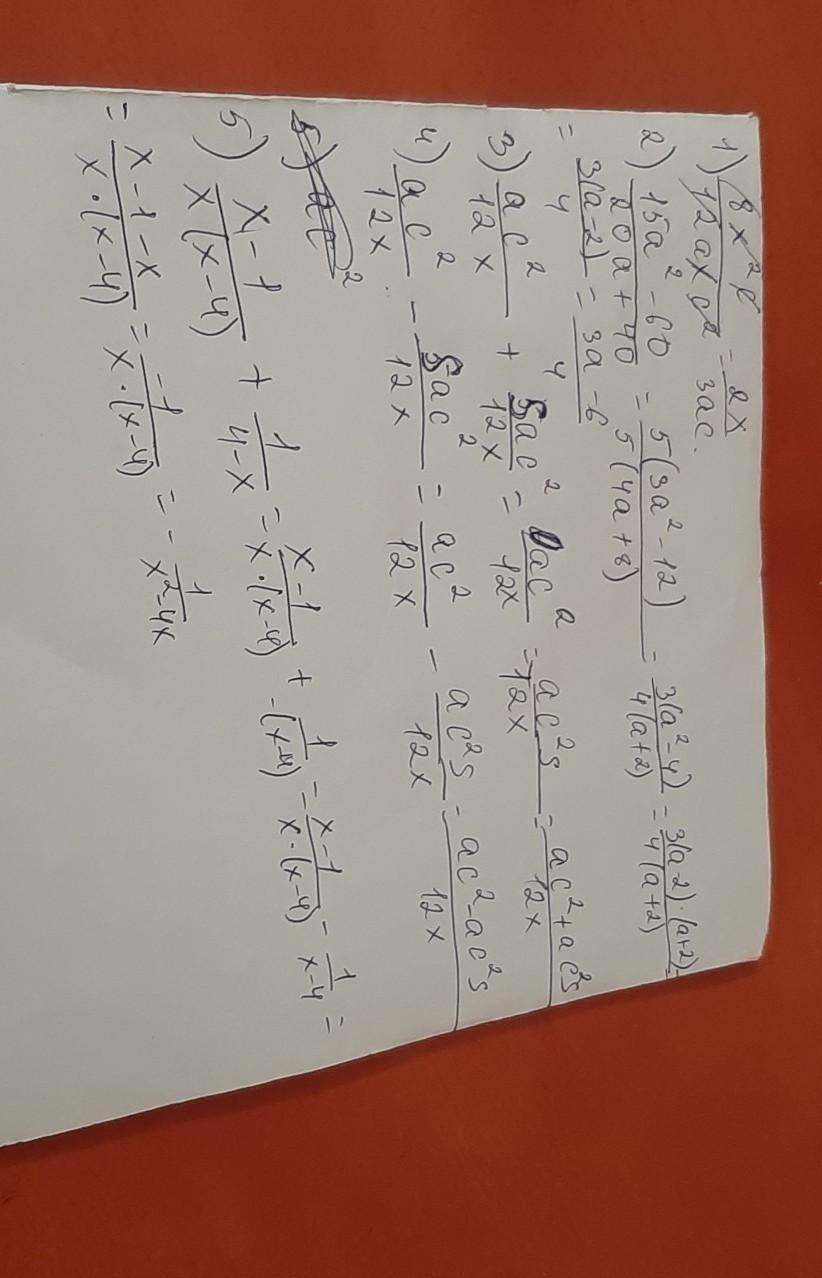 1) 8x²c / 12axc² = 2x / 3ac.
2) 15a² - 60 / 20a + 40 = 5(3a² - 12) / 5(4a + 8) = 3(a² - 4) / 4(a+2) = 3(a-2)·(a+2) / 4(a+2) =
= 3(a-2) / 4 = 3a - 6 / 4
3) ac² / 12x + 5ac² / 12x = ac² / 12x = ac²s / 12x = ac² + ac²s / 12x
4) ac² / 12x - 5ac² / 12x = ac² / 12x - ac²s / 12x = ac² - ac²s / 12x
5) x-1 / x(x-4) + 1 / 4-x = x-1 / x·(x-4) + 1 / -(x-4) = x-1 / x·(x-4) - 1 / x-4 =
= x-1-x / x·(x-4) = -1 / x·(x-4) = - 1 / x²-4x